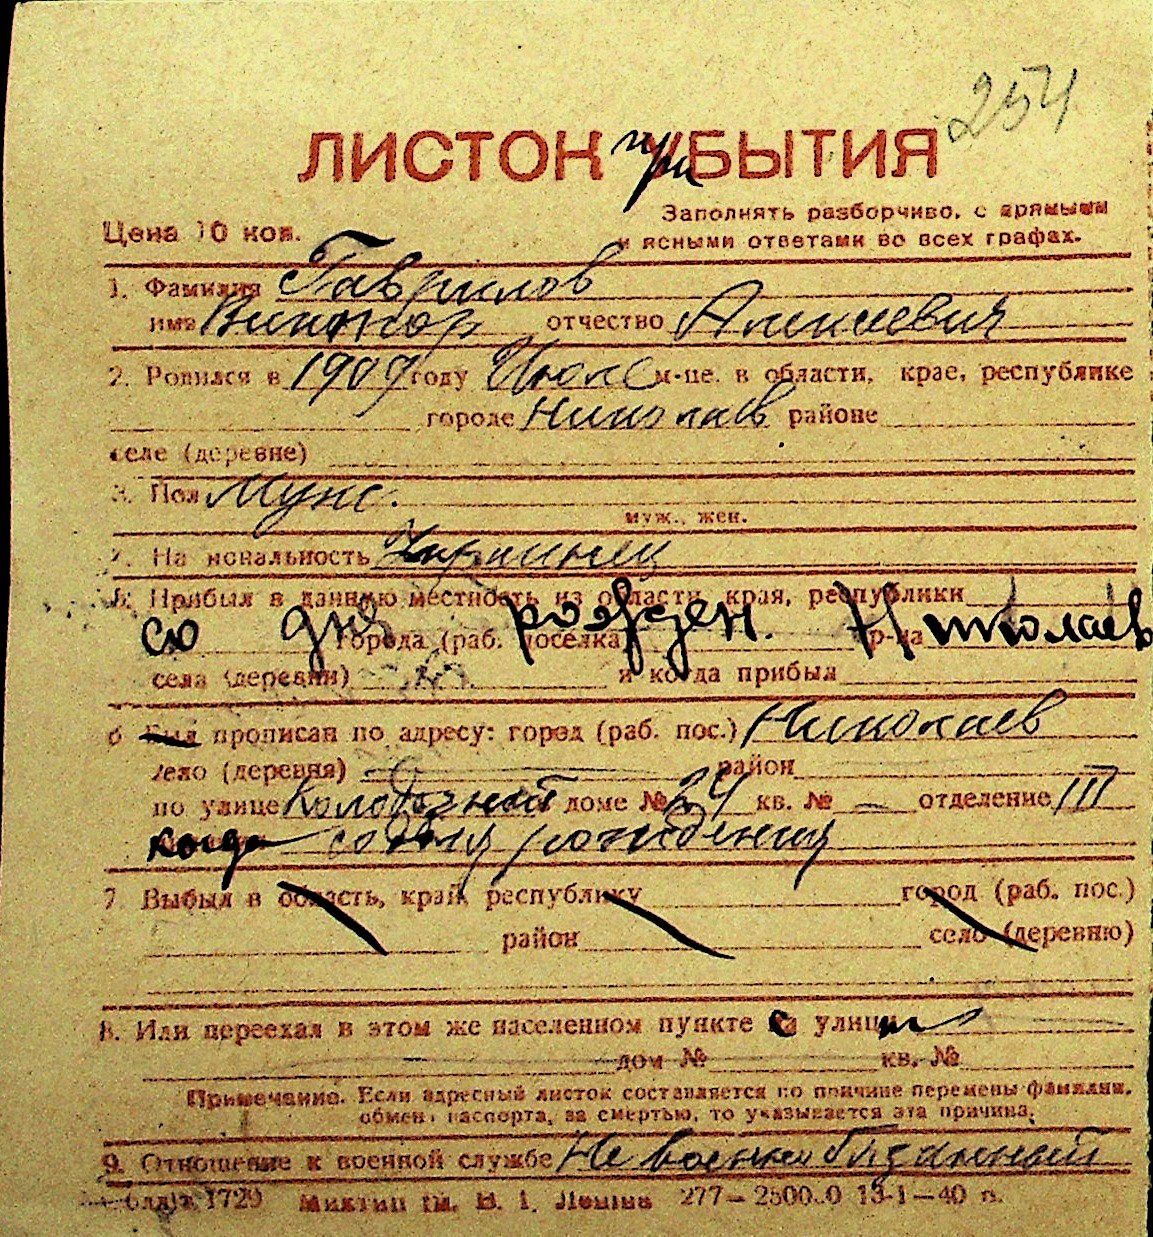 254
ЛИСТОК при БЫТИЯ
Цена 10 коп.
Заполнять разборчиво, с прямыми
и ясными ответами во всех графах.
1. Фамилия Гаврилов
имя Виктор отчество Алексеевич
2. Родился в 1909 году Июле м-це. в области, крае, республике
городе Николаев районе
селе (деревне)
3. Пол Муж.
муж., жен.
4. На иональность Украинец
5. Прибыл в данную местность из области, края, республики
со дня рожден. Николаев
города (раб. поселка) р-на
села (деревни) и когда прибыл
6 Был прописан по адресу: город (раб. пос.) Николаев
село (деревня) район
по улице дом № 24 кв. № — отделение III
когда со дня рождения
7 Выбыл в область, край, республику город (раб. пос.)
район село (деревню)
8. Или переехал в этом же населенном пункте с улицы
дом № кв. №
Примечание. Если адресный листок составляется по причине перемены фамилии,
обмен паспорта, за смертью, то указывается эта причина.
9. Отношение к военной службе Не военнообязанный
1729 им. В. И. Ленина 277—2500.0 13-1—40 г.